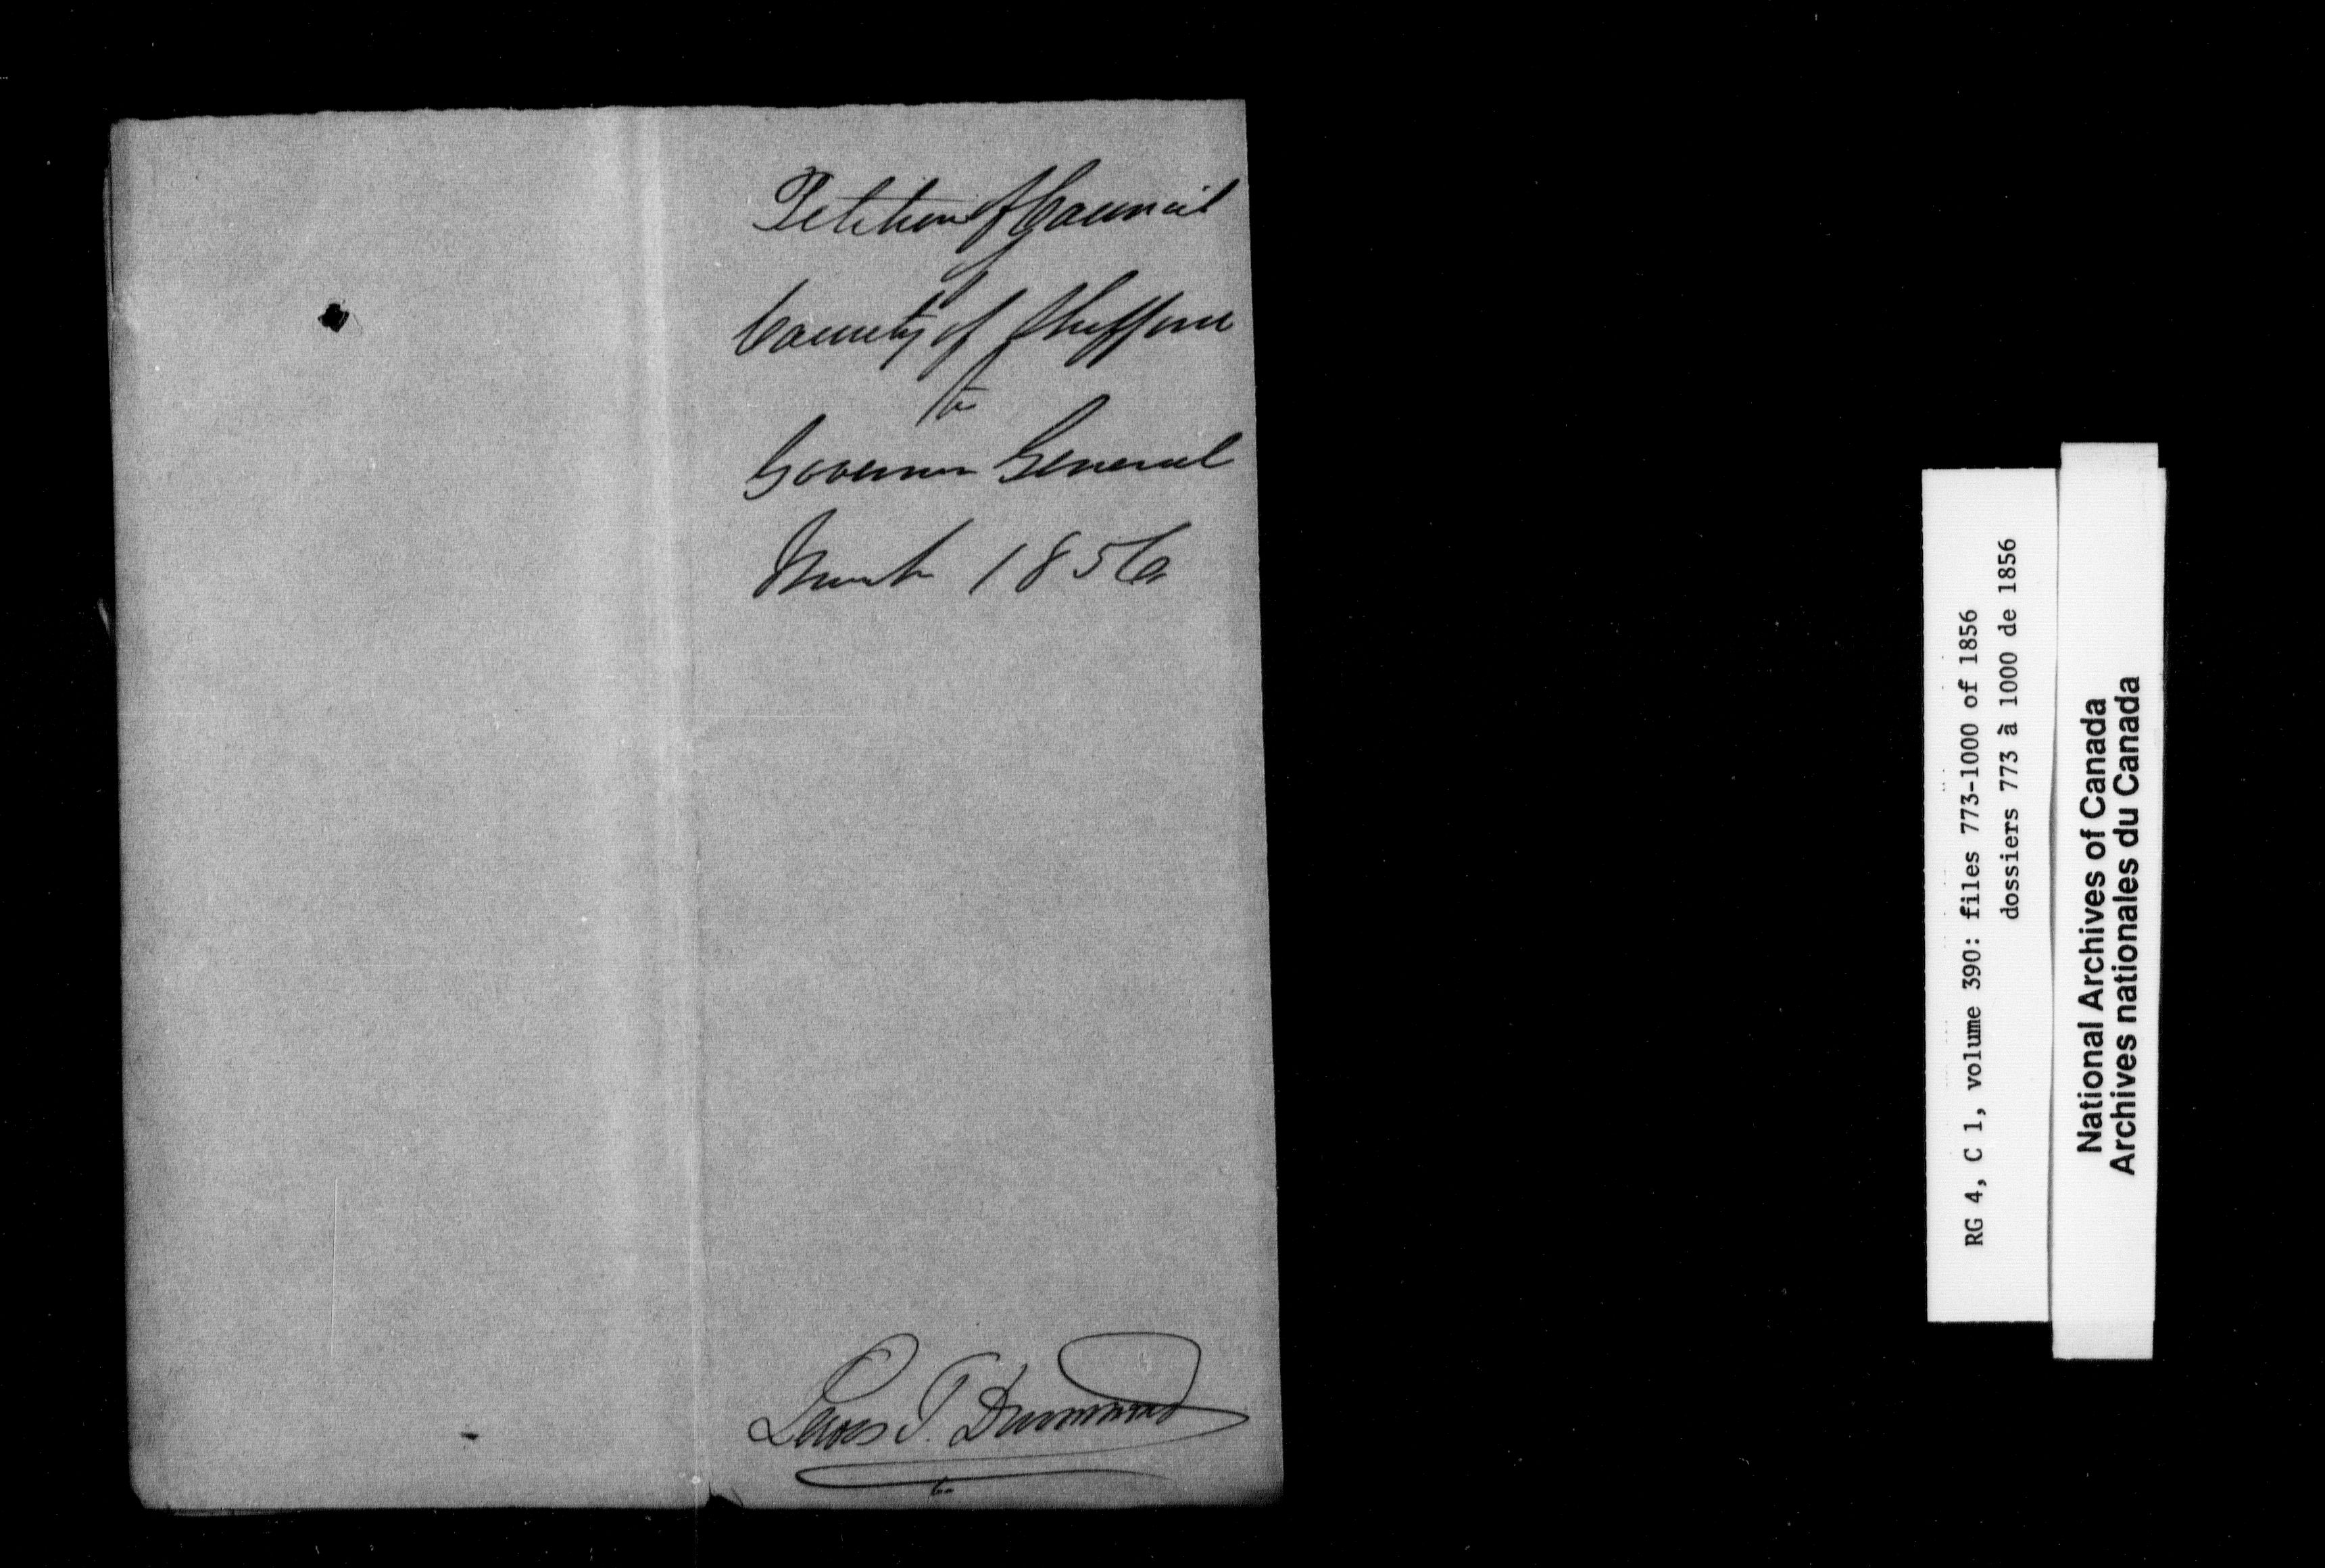 Petition of Council
of
County of Shefford
to
Governor General
March 1856
Lewis T. Drummond
RG 4, C 1, volume 390: files 773-1000 of 1856
dossiers 773 à 1000 de 1856
National Archives of Canada
Archives nationales du Canada